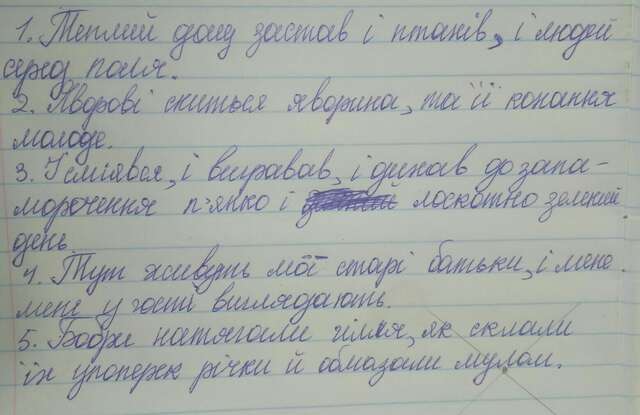 1. Теплий дощ застав і птахів, і людей
серед поля.
2. Яворові сниться яворина, та її кохання
молоде.
3. І сміявся, і вигравав, і дихав до запа-
морочення п'янко і лоскотно зелений
день.
4. Тут живуть мої старі батьки, і мене
мене у гості виглядають.
5. Бобри натягали гілля, як склали
їх упоперек річки й обмазали мулом.